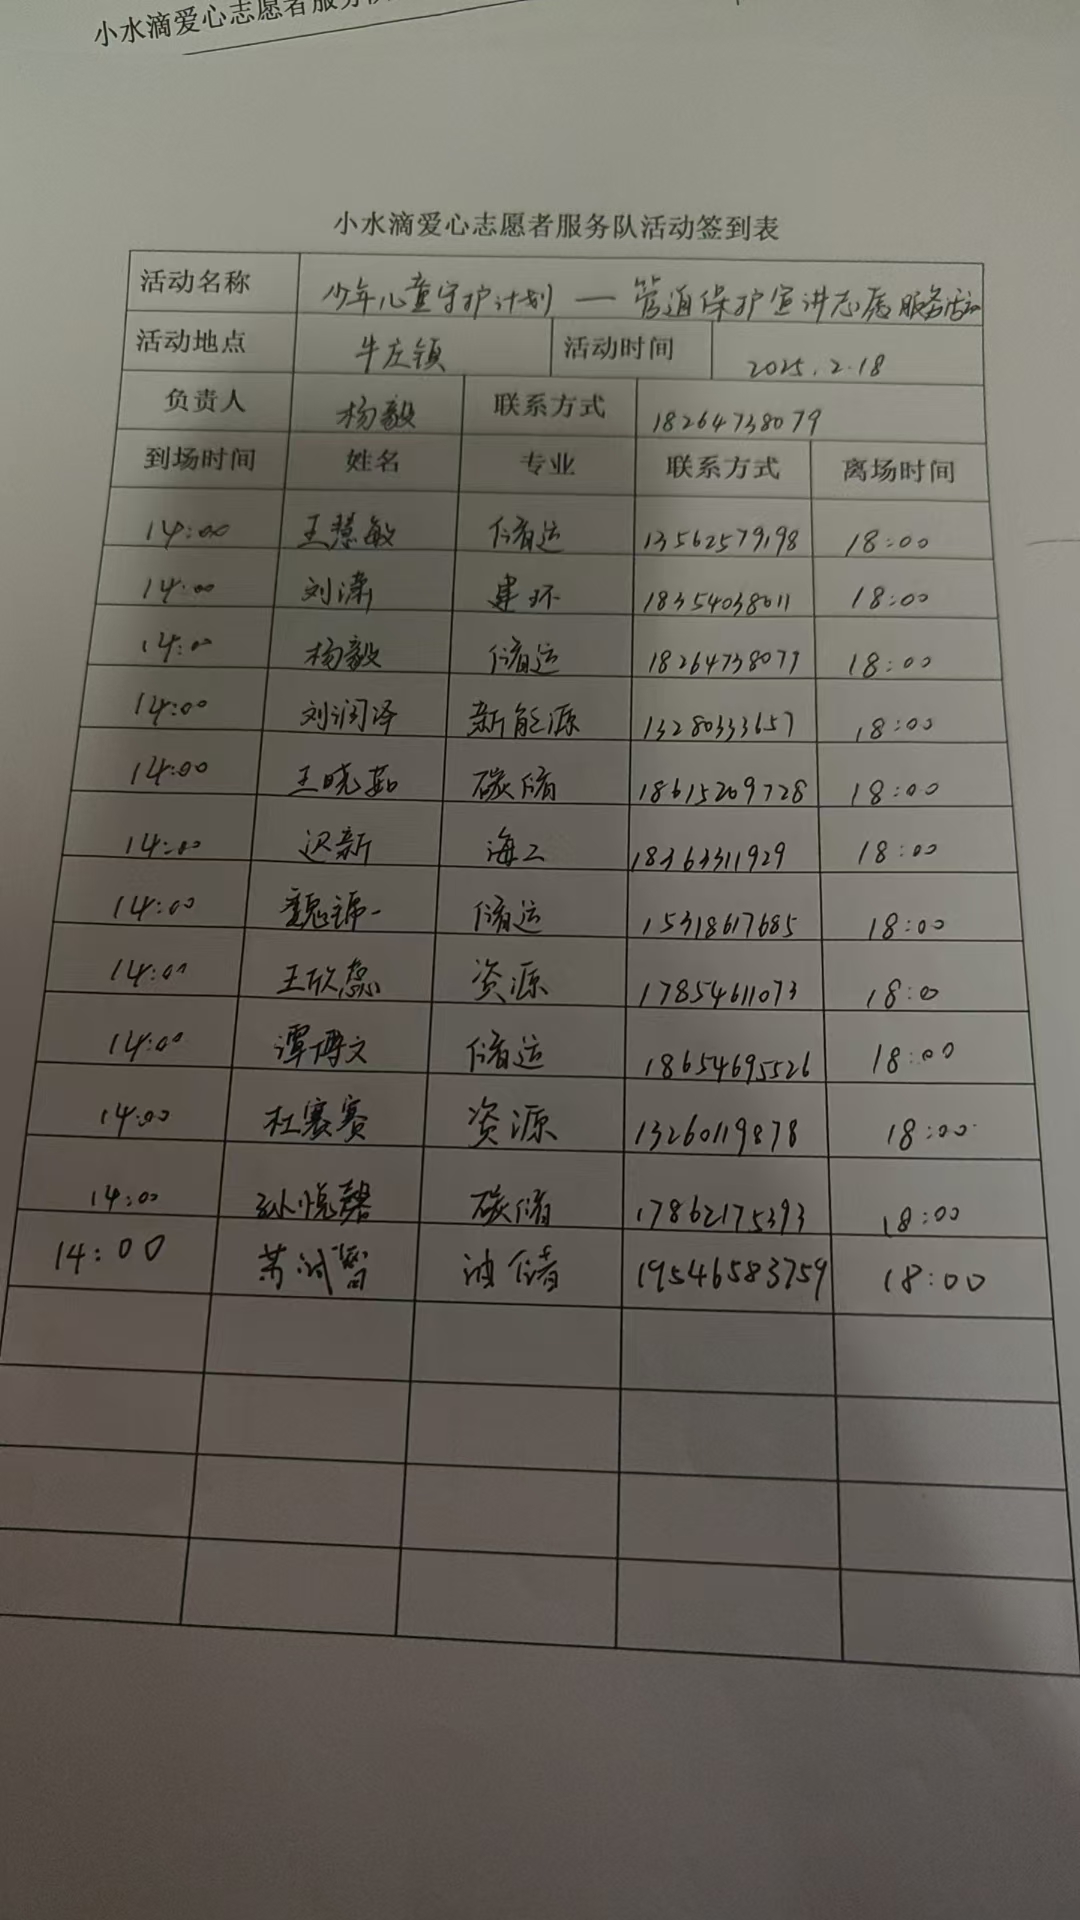 小水滴爱心志愿者服务队
小水滴爱心志愿者服务队活动签到表
活动名称 少年儿童守护计划 — 管道保护宣讲志愿服务活动
活动地点 牛庄镇 活动时间 2025.2.18
负责人 杨毅 联系方式 18264738079
到场时间 姓名 专业 联系方式 离场时间
14:00 王慧敏 储运 13562579198 18:00
14:00 刘潇 建环 18354038011 18:00
14:00 杨毅 储运 18264738079 18:00
14:00 刘润泽 新能源 13280333657 18:00
14:00 王晓茹 碳储 18615209728 18:00
14:00 迟新 海工 18363311929 18:00
14:00 魏锑一 储运 15318617685 18:00
14:00 王欣蕊 资源 17854611073 18:00
14:00 谭博文 储运 18654695526 18:00
14:00 杜赛赛 资源 13260119878 18:00
14:00 孙悦馨 碳储 17862175393 18:00
14:00 油储 19546583759 18:00